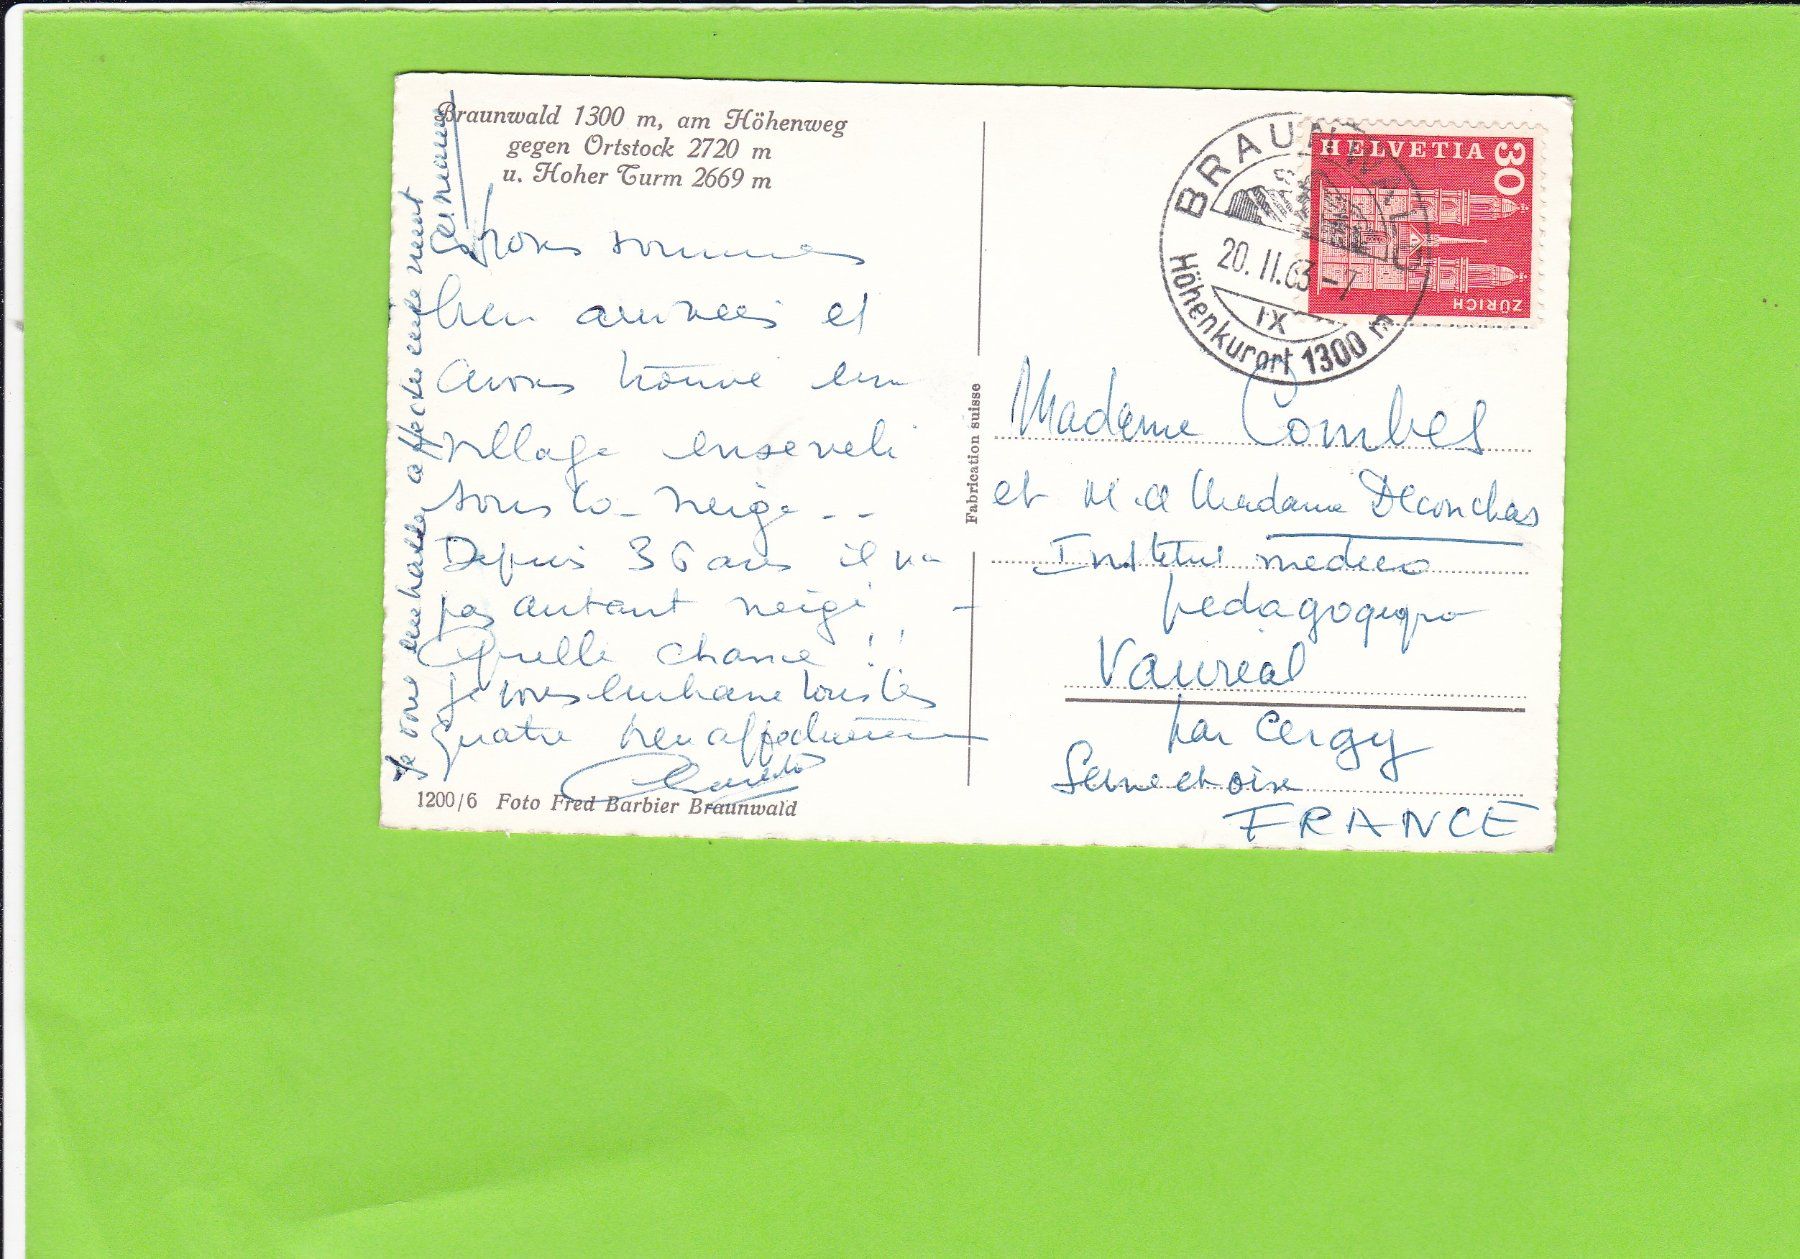 Braunwald 1300 m, am Höhenweg
gegen Ortstock 2720 m
u. Hoher Turm 2669 m
Nous sommes
bien arrivées et
avons trouvé un
village enseveli
sous la neige --
Depuis 36 ans il n'a
pas autant neigé -
Quelle chance !!
Je vous embrasse tous les
quatre bien affectueusement
Je vous embrasse affectueusement
1200/6 Foto Fred Barbier Braunwald
Fabrication suisse
BRAUNWALD
20.II.63-7
IX
Höhenkurort 1300 m
HELVETIA
30
ZÜRICH
Madame Combes
et M. et Madame
Institut medico
pedagogique
Vaureal
par Cergy
Seine et oise
FRANCE